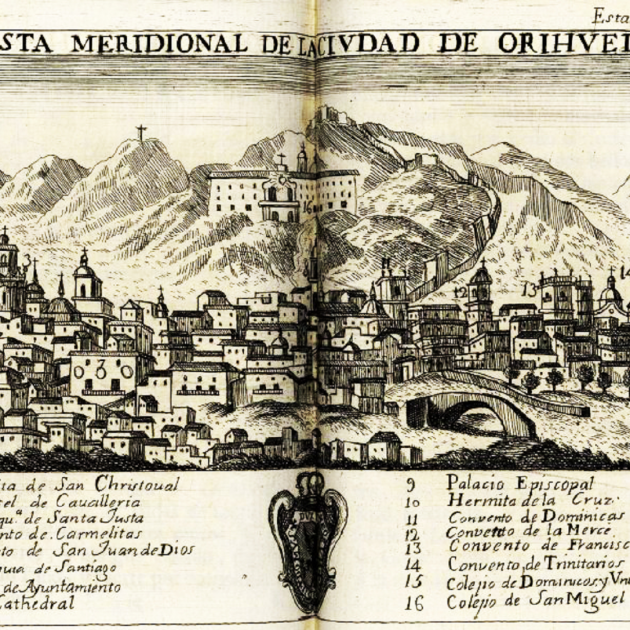 Esta
STA MERIDIONAL DE LA CIVDAD DE ORIHVEL
12
13
14
ita de San Christoual
cel de Caualleria
qu.ª de Santa Justa
nto de Carmelitas
to de San Juan de Dios
quia de Santiago
de Ayuntamiento
Cathedral
9 Palacio Episcopal
10 Hermita de la Cruz
11 Convento de Dominicas
12 Convento de la Merce
13 Convento de Francisc
14 Convento de Trinitarios
15 Colejio de Dominicos y Vni
16 Colejio de San Miguel